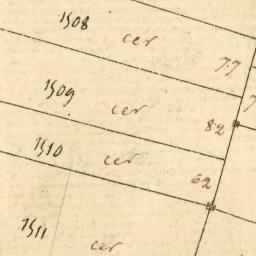 1508
cer
7.7
1509
cer
82
1510
cer
62
1511
cer